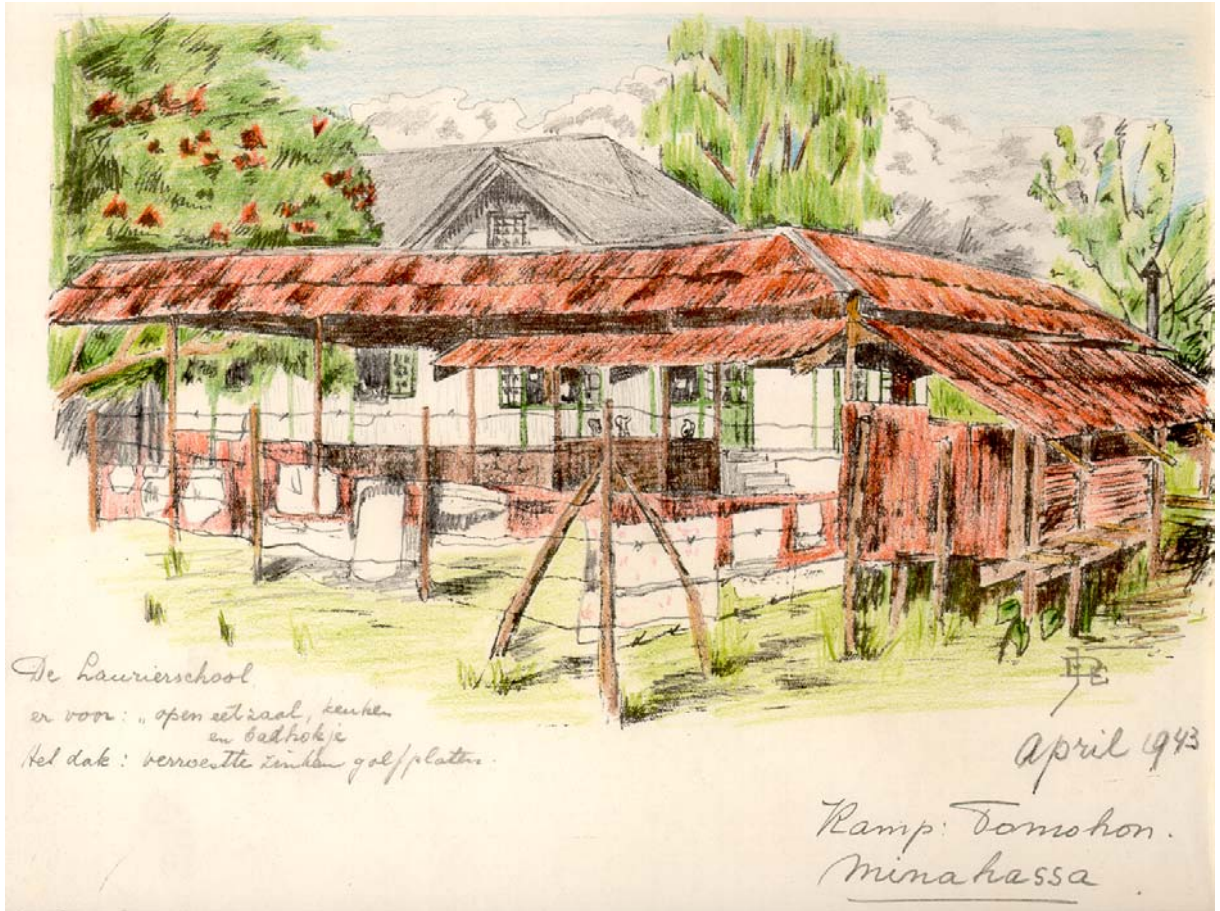 De Laurierschool
er voor: „open eetzaal, keuken
en badhokje
Het dak: verroestte zinken golfplaten.
April 1943
Kamp: Tomohon.
Minahassa